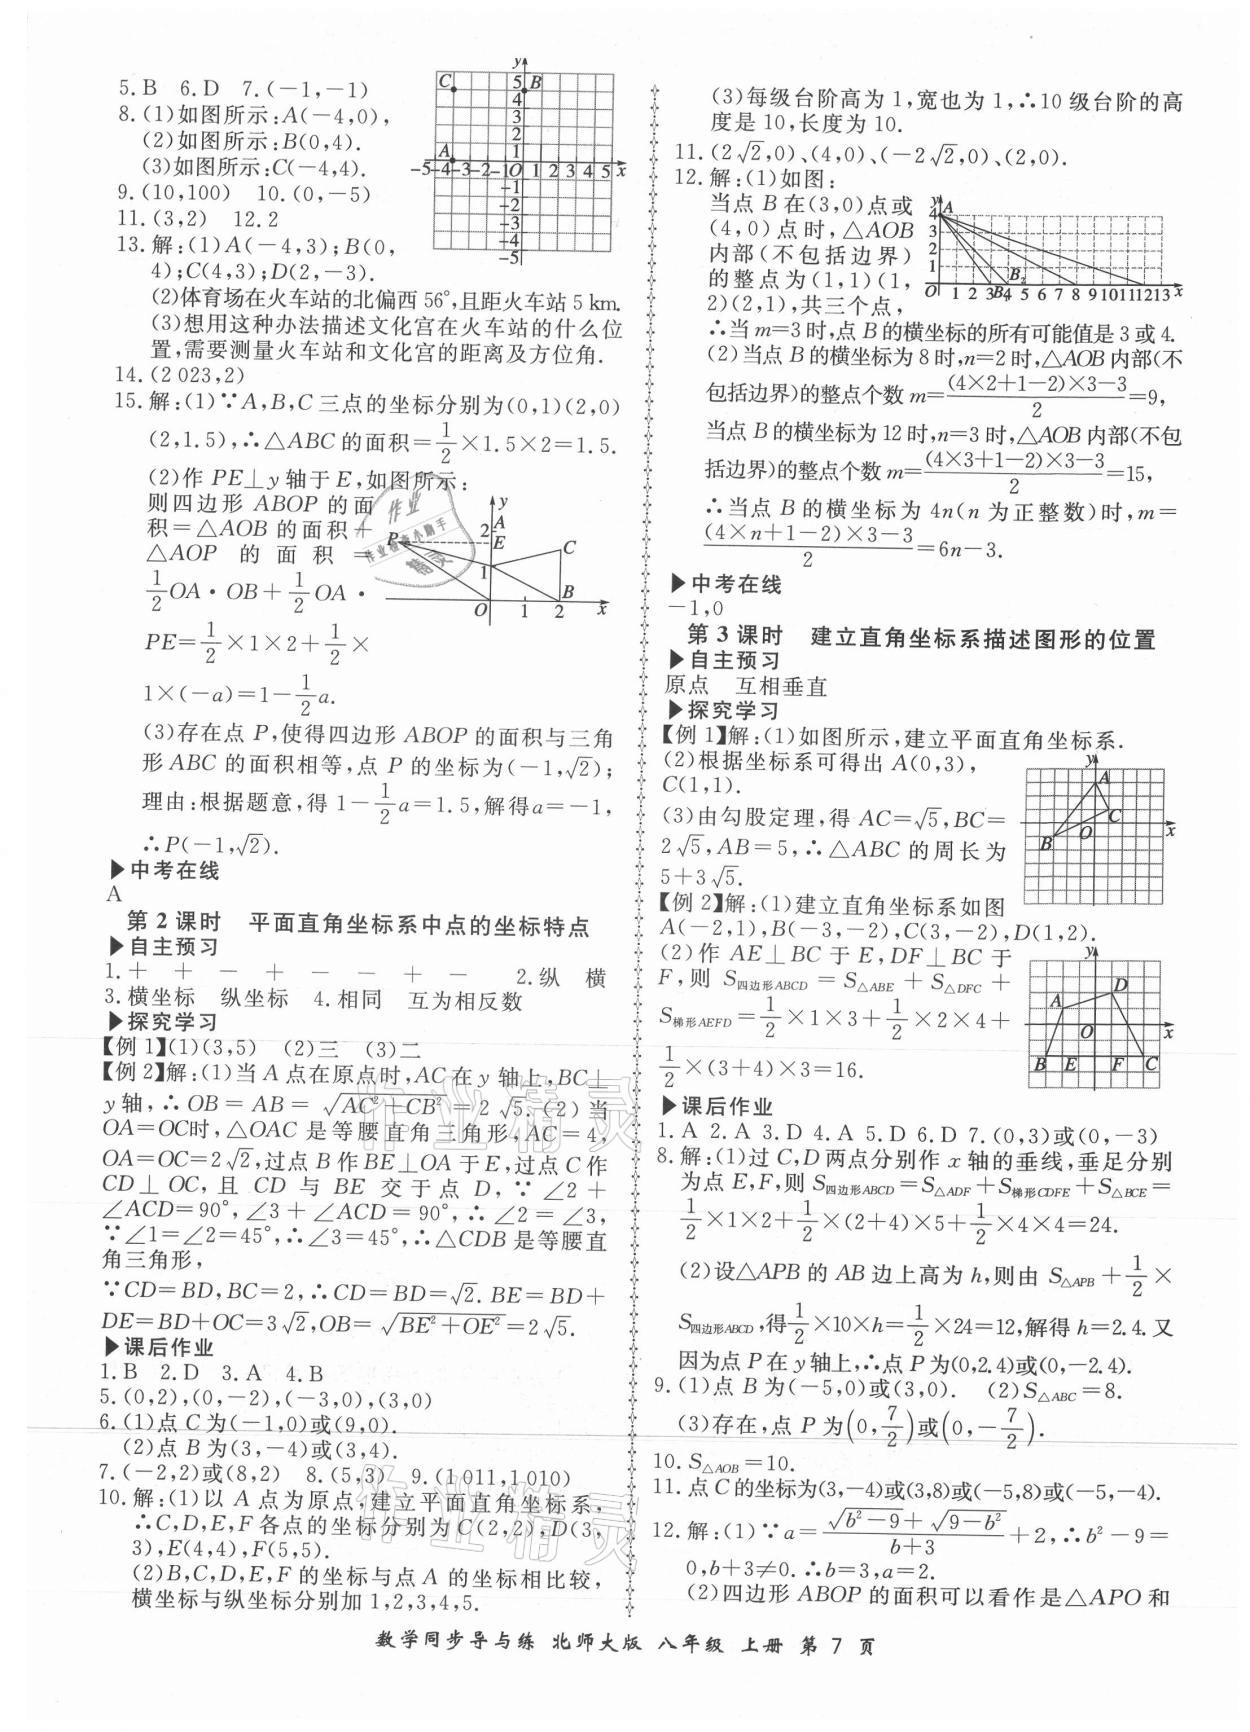 5. B  6. D  7. (-1,-1)
8. (1)如图所示:A(-4,0),
(2)如图所示:B(0,4).
(3)如图所示:C(-4,4).
9. (10,100)  10. (0,-5)
11. (3,2)  12. 2
13. 解:(1)A(-4,3);B(0,
4);C(4,3);D(2,-3).
(2)体育场在火车站的北偏西 56°,且距火车站 5 km.
(3)想用这种办法描述文化宫在火车站的什么位
置,需要测量火车站和文化宫的距离及方位角.
14. (2 023,2)
15. 解:(1)∵A,B,C 三点的坐标分别为(0,1)(2,0)
(2,1.5),∴△ABC 的面积=1/2×1.5×2=1.5.
(2)作 PE⊥y 轴于 E,如图所示:
则四边形 ABOP 的面
积=△AOB 的面积+
△AOP 的面积=
1/2OA·OB+1/2OA·
PE=1/2×1×2+1/2×
1×(-a)=1-1/2a.
(3)存在点 P,使得四边形 ABOP 的面积与三角
形 ABC 的面积相等,点 P 的坐标为(-1,√2);
理由:根据题意,得 1-1/2a=1.5,解得a=-1,
∴P(-1,√2).
▶中考在线
A
第 2 课时  平面直角坐标系中点的坐标特点
▶自主预习
1. + + - + - - + -  2. 纵 横
3. 横坐标 纵坐标  4. 相同 互为相反数
▶探究学习
【例 1】(1)(3,5)  (2)三  (3)二
【例 2】解:(1)当 A 点在原点时,AC在 y 轴上,BC⊥
y轴,∴OB=AB=√(AC²+CB²)=2√5. (2)当
OA=OC时,△OAC 是等腰直角三角形,AC=4,
OA=OC=2√2,过点 B 作 BE⊥OA 于 E,过点 C 作
CD⊥OC,且 CD 与 BE 交于点 D,∵∠2+
∠ACD=90°,∠3+∠ACD=90°,∴∠2=∠3,
∵∠1=∠2=45°,∴∠3=45°,∴△CDB 是等腰直
角三角形,
∵CD=BD,BC=2,∴CD=BD=√2. BE=BD+
DE=BD+OC=3√2,OB=√(BE²+OE²)=2√5.
▶课后作业
1. B  2. D  3. A  4. B
5. (0,2),(0,-2),(-3,0),(3,0)
6. (1)点 C 为(-1,0)或(9,0).
(2)点 B 为(3,-4)或(3,4).
7. (-2,2)或(8,2)  8. (5,3)  9. (1 011,1 010)
10. 解:(1)以 A 点为原点,建立平面直角坐标系,
∴C,D,E,F 各点的坐标分别为 C(2,2),D(3,
3),E(4,4),F(5,5).
(2)B,C,D,E,F 的坐标与点 A 的坐标相比较,
横坐标与纵坐标分别加 1,2,3,4,5.
(3)每级台阶高为 1,宽也为 1,∴10 级台阶的高
度是 10,长度为 10.
11. (2√2,0)、(4,0)、(-2√2,0)、(2,0).
12. 解:(1)如图:
当点 B 在(3,0)点或
(4,0)点时,△AOB
内部(不包括边界)
的整点为(1,1)(1,
2)(2,1),共三个点,
∴当 m=3 时,点 B 的横坐标的所有可能值是 3 或 4.
(2)当点 B 的横坐标为 8 时,n=2 时,△AOB 内部(不
包括边界)的整点个数 m=((4×2+1-2)×3-3)/2=9,
当点 B 的横坐标为 12 时,n=3 时,△AOB 内部(不包
括边界)的整点个数 m=((4×3+1-2)×3-3)/2=15,
∴当点 B 的横坐标为 4n(n 为正整数)时,m=
((4×n+1-2)×3-3)/2=6n-3.
▶中考在线
-1,0
第 3 课时  建立直角坐标系描述图形的位置
▶自主预习
原点  互相垂直
▶探究学习
【例 1】解:(1)如图所示,建立平面直角坐标系.
(2)根据坐标系可得出 A(0,3),
C(1,1).
(3)由勾股定理,得 AC=√5,BC=
2√5,AB=5,∴△ABC 的周长为
5+3√5.
【例 2】解:(1)建立直角坐标系如图
A(-2,1),B(-3,-2),C(3,-2),D(1,2).
(2)作 AE⊥BC 于 E,DF⊥BC 于
F,则 S四边形ABCD=S△ABE+S△DFC+
S梯形AEFD=1/2×1×3+1/2×2×4+
1/2×(3+4)×3=16.
▶课后作业
1. A  2. A  3. D  4. A  5. D  6. D  7. (0,3)或(0,-3)
8. 解:(1)过 C,D 两点分别作 x 轴的垂线,垂足分别
为点 E,F,则 S四边形ABCD=S△ADF+S梯形CDFE+S△BCE=
1/2×1×2+1/2×(2+4)×5+1/2×4×4=24.
(2)设△APB 的 AB 边上高为 h,则由 S△APB+1/2×
S四边形ABCD,得1/2×10×h=1/2×24=12,解得 h=2.4. 又
因为点 P 在 y 轴上,∴点 P 为(0,2.4)或(0,-2.4).
9. (1)点 B 为(-5,0)或(3,0).  (2)S△ABC=8.
(3)存在,点 P 为(0,7/2)或(0,-7/2).
10. S△AOB=10.
11. 点 C 的坐标为(3,-4)或(3,8)或(-5,8)或(-5,-4).
12. 解:(1)∵a=(√(b²-9)+√(9-b²))/(b+3)+2,∴b²-9=
0,b+3≠0. ∴b=3,a=2.
(2)四边形 ABOP 的面积可以看作是△APO 和
数学同步导与练 北师大版 八年级 上册 第 7 页